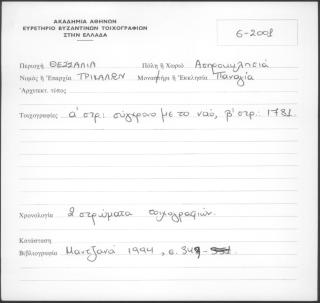 ΑΚΑΔΗΜΙΑ ΑΘΗΝΩΝ
ΕΥΡΕΤΗΡΙΟ ΒΥΖΑΝΤΙΝΩΝ ΤΟΙΧΟΓΡΑΦΙΩΝ
ΣΤΗΝ ΕΛΛΑΔΑ
6-2008
Περιοχή ΘΕΣΣΑΛΙΑ Πόλη ή Χωριό Ασπροκκλησιά
Νομός ή Επαρχία ΤΡΙΚΑΛΩΝ Μοναστήρι ή Εκκλησία Παναγία
Αρχιτεκτ. τύπος
Τοιχογραφίες α' στρ: σύγχρονο με το ναό, β' στρ.: 1781.
Χρονολογία 2 στρώματα τοιχογραφιών.
Κατάσταση
Βιβλιογραφία Μαντζανά 1994, σ. 349